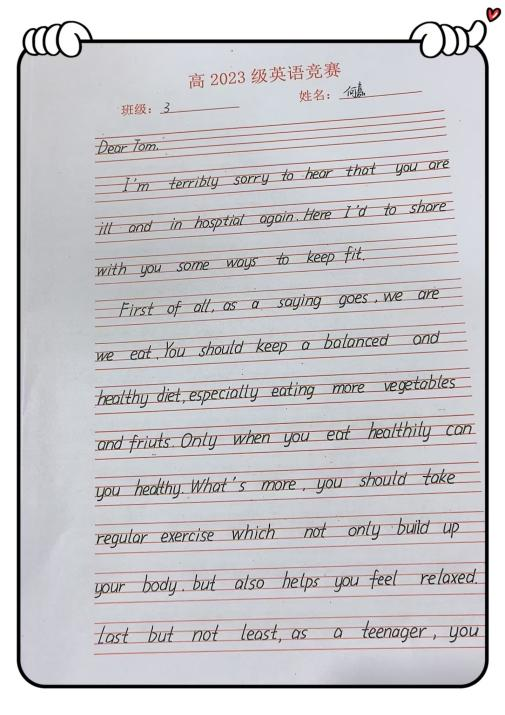 高 2023 级英语竞赛
班级: 3 姓名: 何嘉
Dear Tom.
I'm terribly sorry to hear that you are
ill and in hosptial again. Here I'd to share
with you some ways to keep fit.
First of all, as a saying goes, we are
we eat. You should keep a balanced and
healthy diet, especially eating more vegetables
and friuts. Only when you eat healthily can
you healthy. What's more, you should take
regular exercise which not only build up
your body, but also helps you feel relaxed.
Last but not least, as a teenager, you